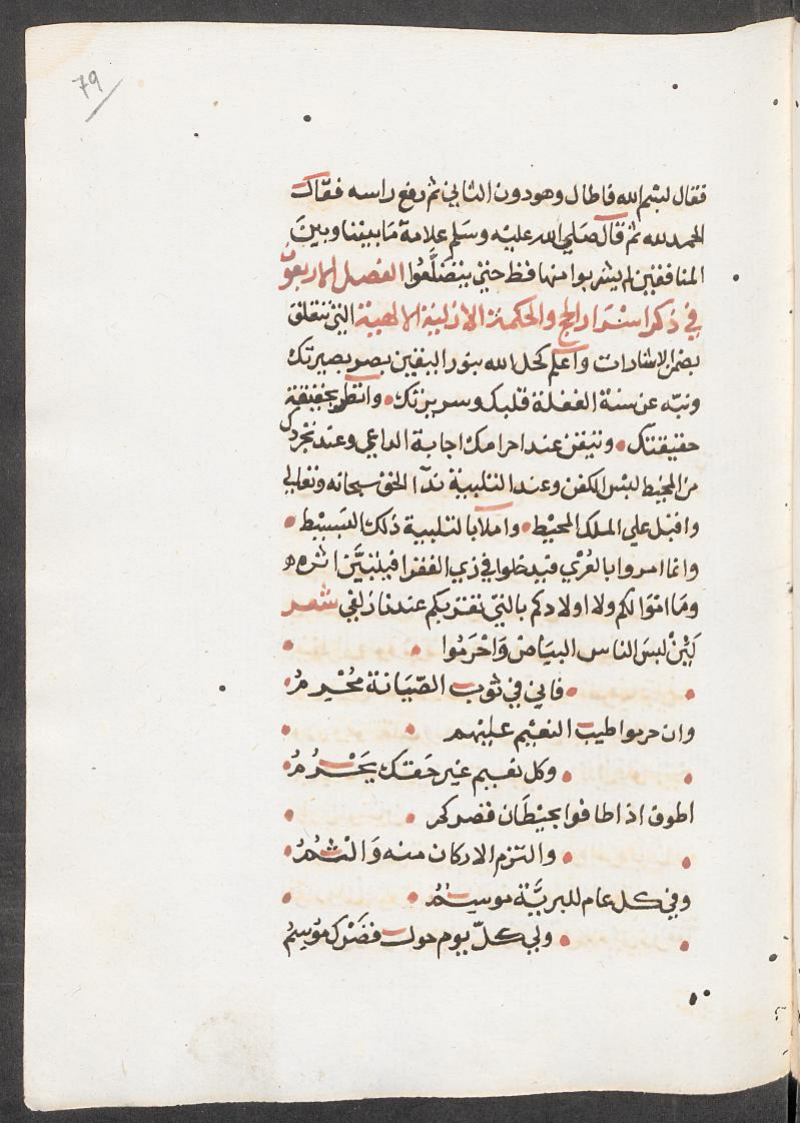 79
فقال بسم الله فاطال وهو دون الثاني ثم رفع راسه فقال
الحمد لله ثم قال صلي الله عليه وسلم علامة ما بيننا وبين
المنافقين لم يشربوا منها قط حتي يتضلعوا الفصل الاربعون
في ذكر اسرار الحج والحكمة الازلية الالهية التي تتعلق
بضمن الاشارات واعلم كحل الله بنور اليقين بصر بصيرتك
ونبه عن سنة الغفلة قلبك وسريرتك وانظر بحقيقة
حقيقتك وتيقن عند احرامك اجابة الداعي وعند تجردك
من المخيط لبس الكفن وعند التلبية ندآ الحق سبحانه وتعالي
واقبل علي الملك المحيط واملأ بالتلبية ذلك البسيط
وانما امروا بالعُرْي فيدخلوا في زي الفقرا فيلبَّين اثره
وما اموالكم ولا اولادكم بالتي تقربكم عندنا زلفي شعر
لَئِنْ لبسَ الناس البياض وَاحْرَمُوا
فاني في ثوب الصّيَانة مُحْرِمُ
وان حرموا طيب النعيم عليهم
وكل نعيم غير حَقك يَحْرُمُ
اطوف اذا طافوا بحيْطَان قصركم
والتزم الاركان منه وَالْثمُ
وفي كل عام للبريَّة موسمُ
ولي كلّ يوم حول قصَرْك مَوْسِمُ